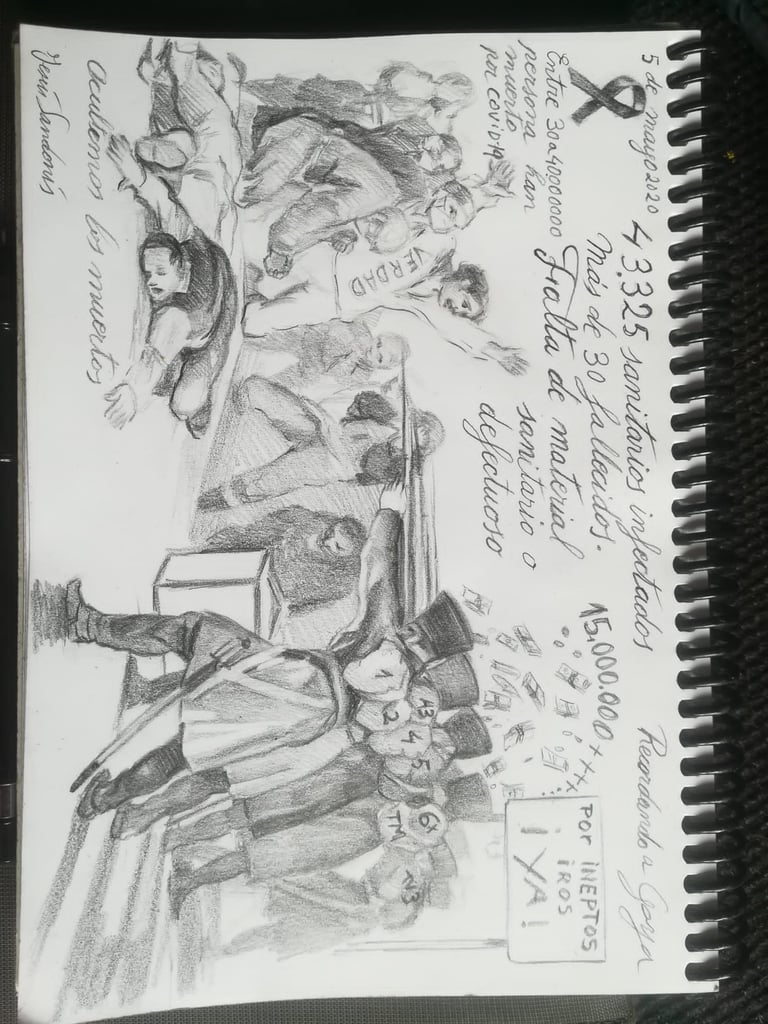 5 de mayo 2020
43.325 sanitarios infectados
Más de 30 fallecidos.
Falta de material
sanitario o
defectuoso
Entre 30 a 40000000
persona han
muerto
por covid19
Recordando a Goya
15.000.000
xxx
POR INEPTOS
IROS
¡YA!
VERDAD
1
2
13
4
5
6X
TM
N3
Ocultemos los muertos